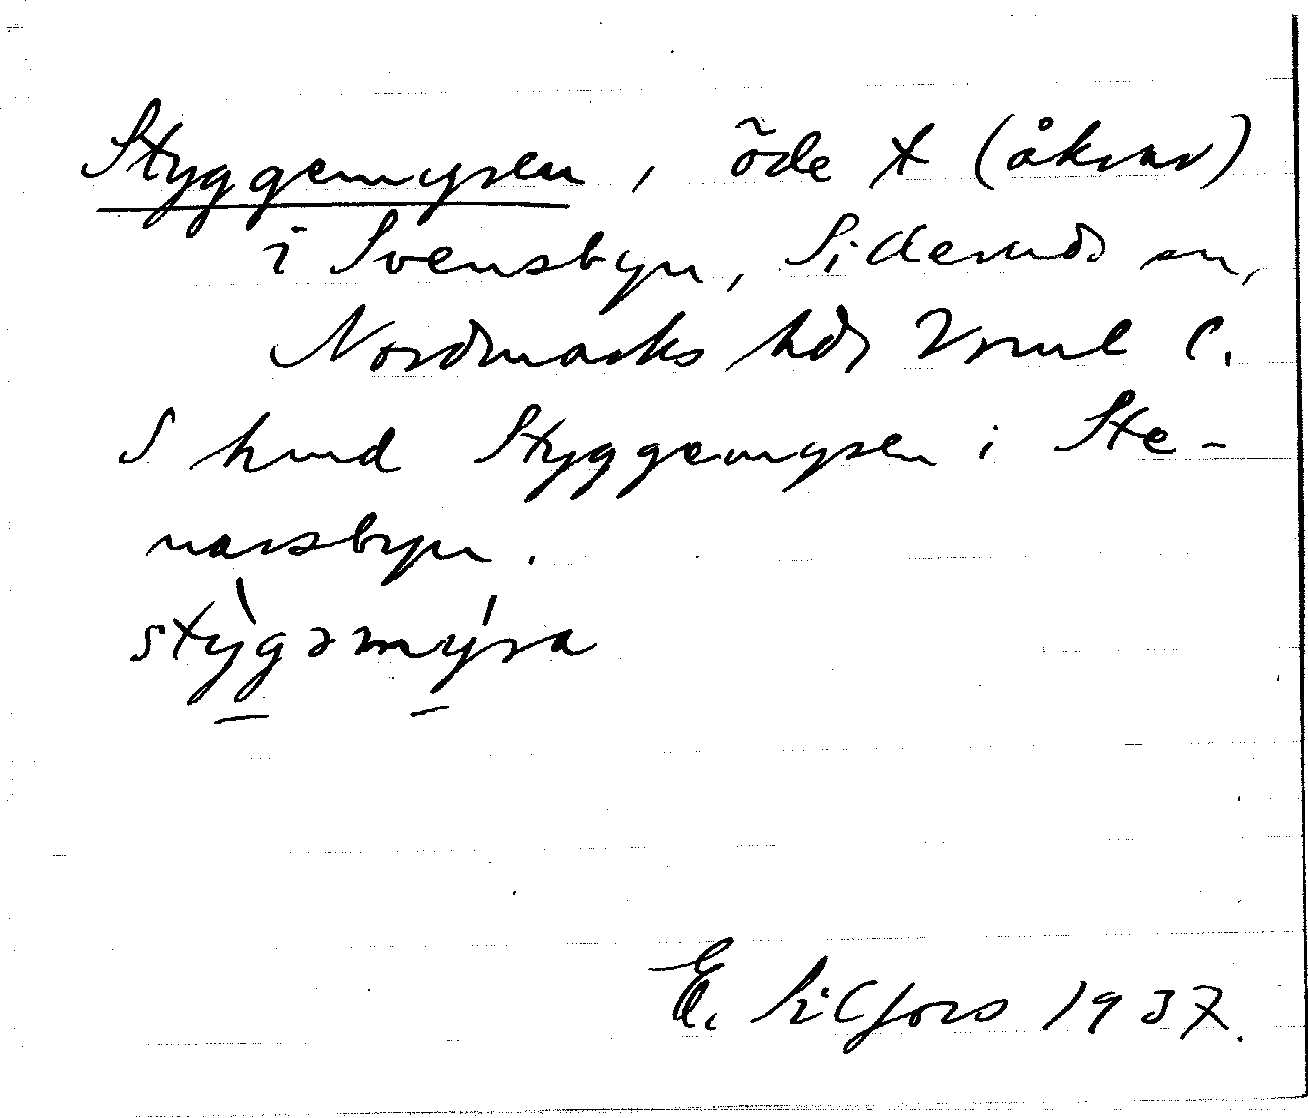 Styggemyren, öde t (åkrar)
i Svensbyn, Sillerud sn,
Nordmarks hd, Vrml l.
I hmd Styggemyren i Ste-
narsbyn.
stỳgəmýra
E. Lilfors 1937.